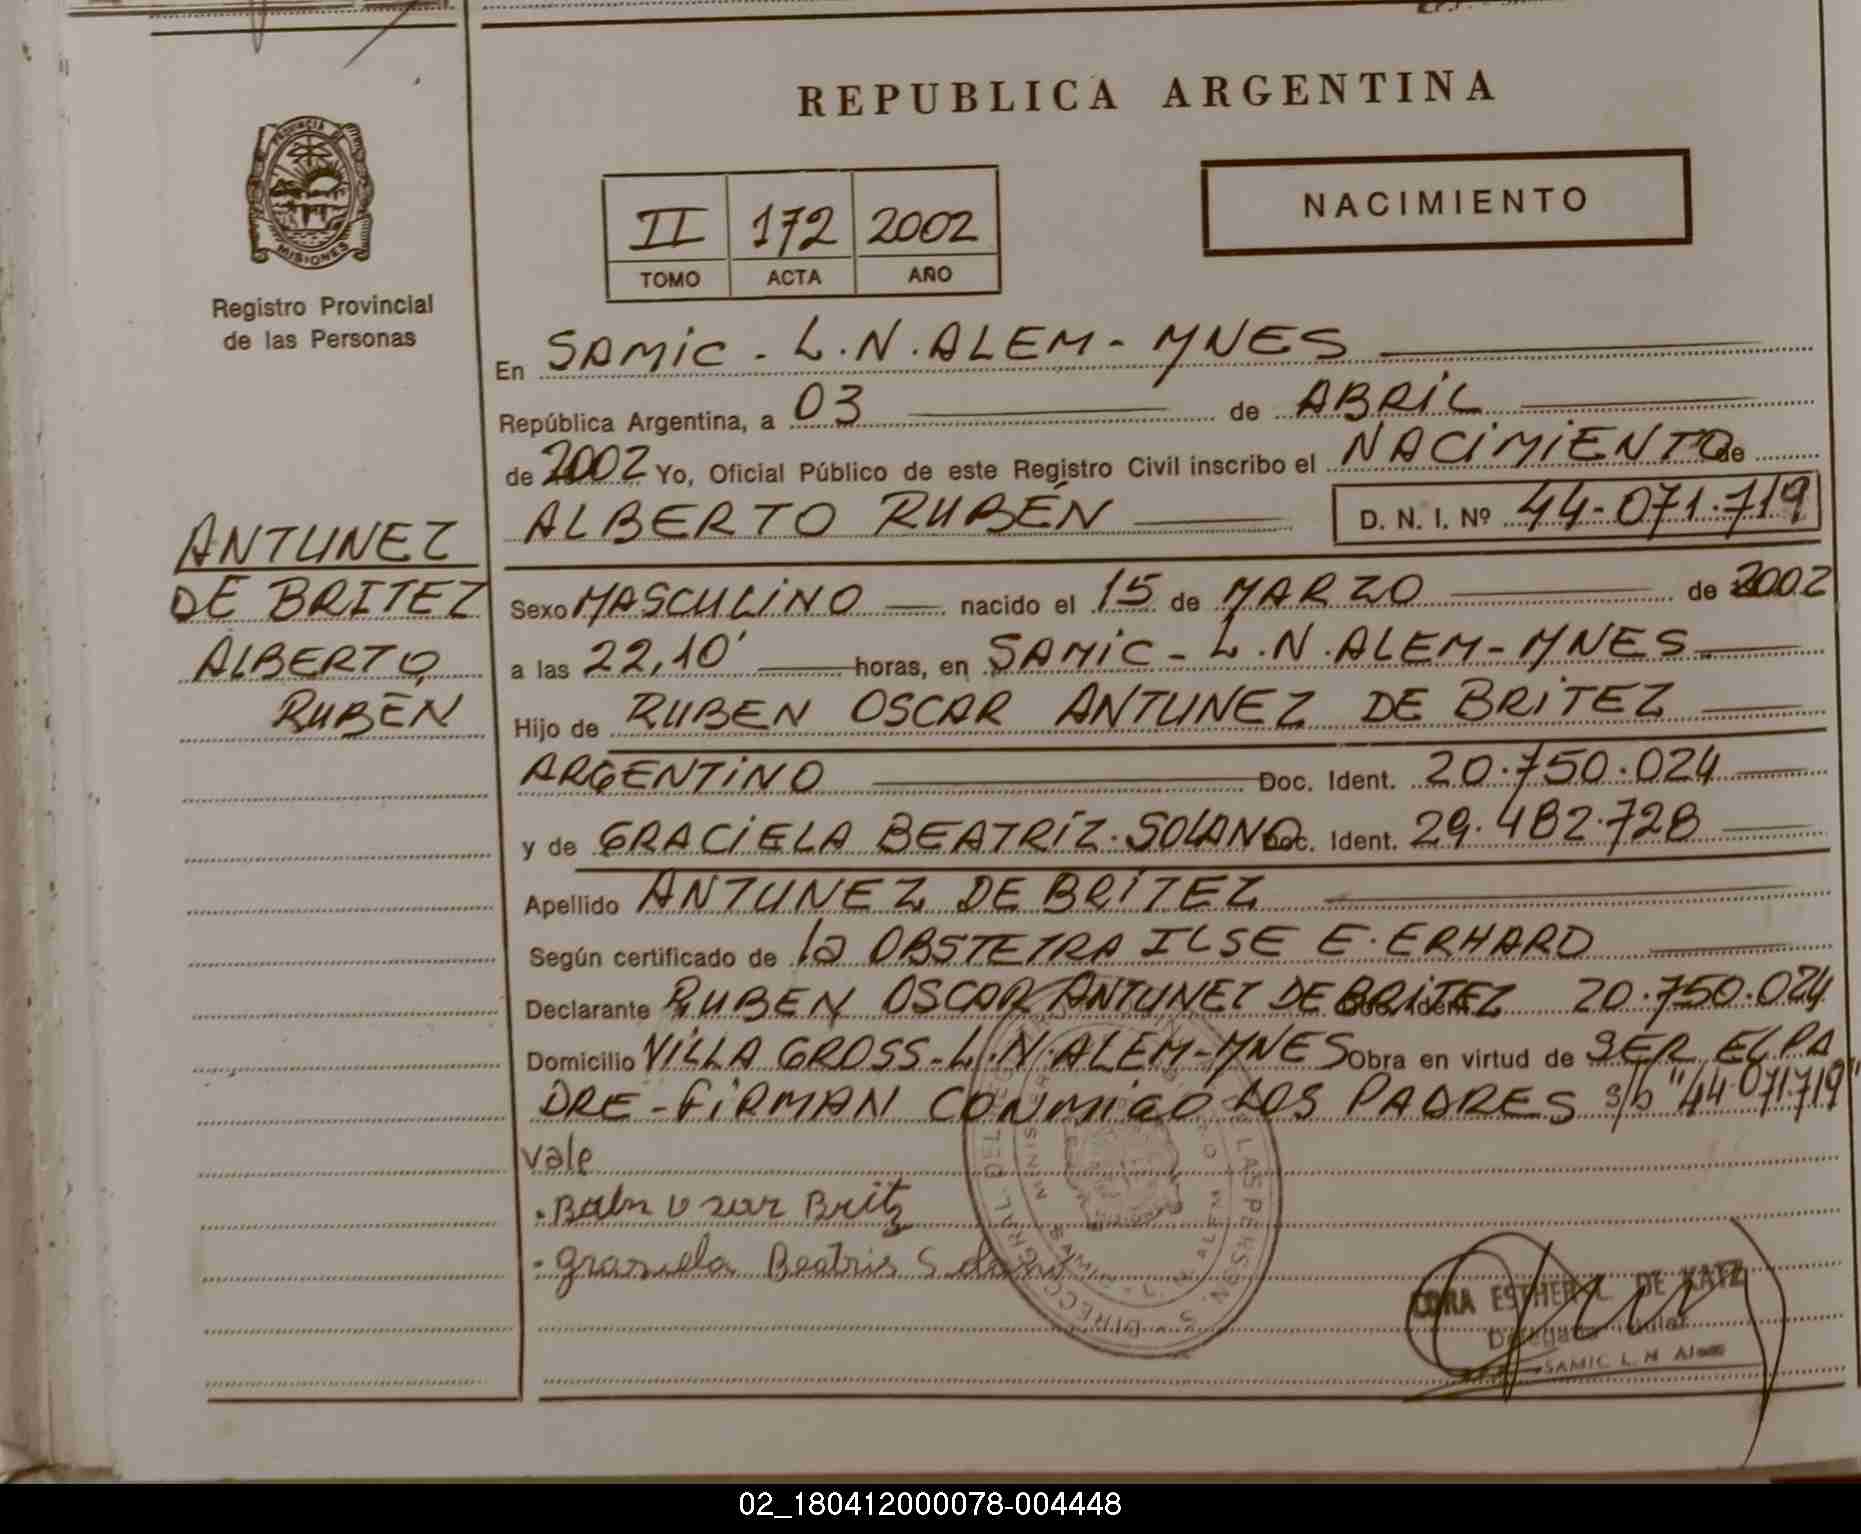 REPUBLICA ARGENTINA
PROVINCIA DE
MISIONES
Registro Provincial
de las Personas
II 172 2002
TOMO ACTA AÑO
NACIMIENTO
En SAMIC - L.N. ALEM - MNES
República Argentina, a 03 de ABRIL
de 2002 Yo, Oficial Público de este Registro Civil inscribo el NACIMIENTO de
ALBERTO RUBÉN D. N. I. Nº 44-071.719
ANTUNEZ
DE BRITEZ
ALBERTO
RUBÉN
Sexo MASCULINO nacido el 15 de MARZO de 2002
a las 22,10' horas, en SAMIC - L.N. ALEM - MNES
Hijo de RUBEN OSCAR ANTUNEZ DE BRITEZ
ARGENTINO Doc. Ident. 20.750.024
y de GRACIELA BEATRÍZ. SOLANO Doc. Ident. 29.482.728
Apellido ANTUNEZ DE BRÍTEZ
Según certificado de la OBSTETRA ILSE E. ERHARD
Declarante RUBEN OSCAR ANTUNEZ DE BRITEZ Doc. Ident. 20.750.024
Domicilio VILLA GROSS - L.N. ALEM - MNES Obra en virtud de SER EL PA
DRE - FIRMAN CONMIGO LOS PADRES s/b "44.071.719"
vale
Britz
Beatris
ESTHER L. DE KATZ
Delegada Titular
SAMIC L. N. Alem
02_180412000078-004448